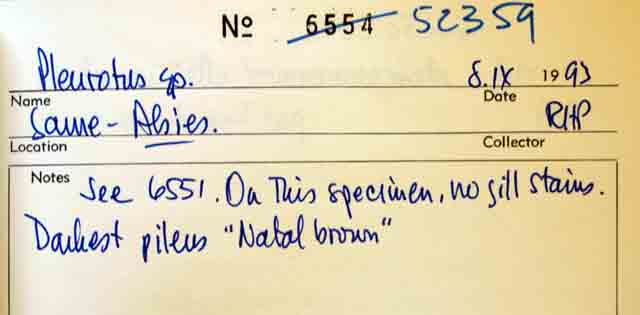 Nº 6554 52359
Pleurotus sp. 8.IX 1993
Name Date
Same - Abies. RHP
Location Collector
Notes See 6551. On this specimen, no gill stains.
Darkest pileus "Natal brown"